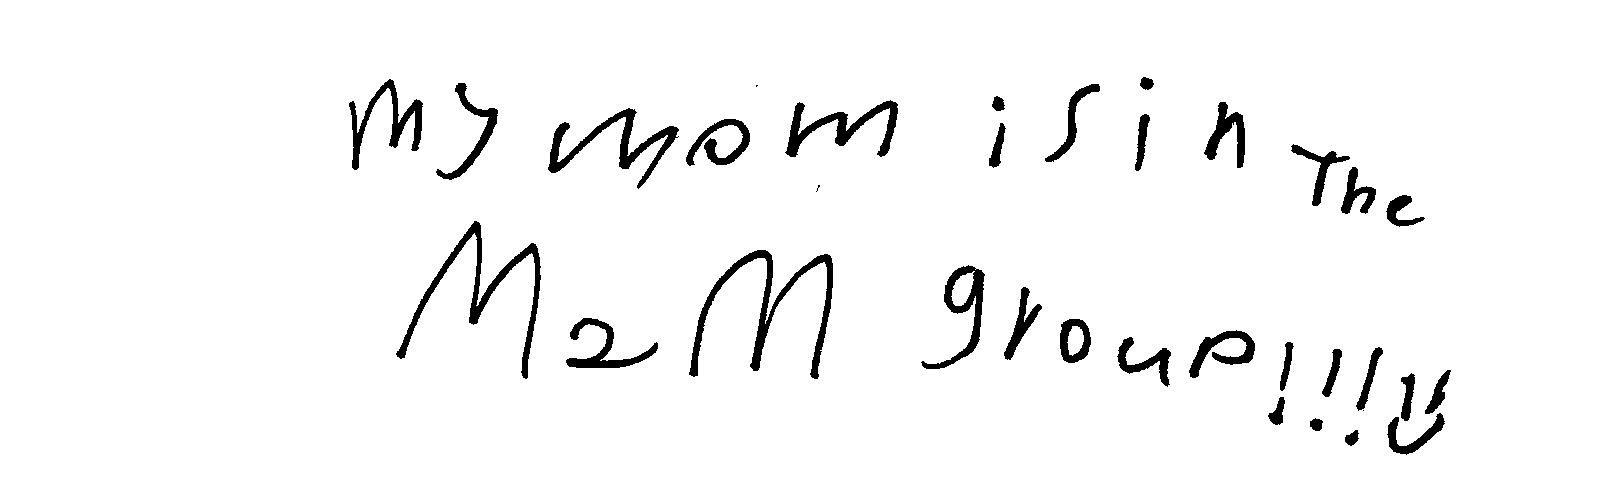 my mom is in The
M2M group!!! :)